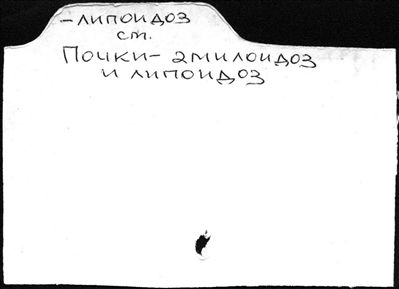 -липоидоз
ст.
Почки- амилоидоз
и липоидоз